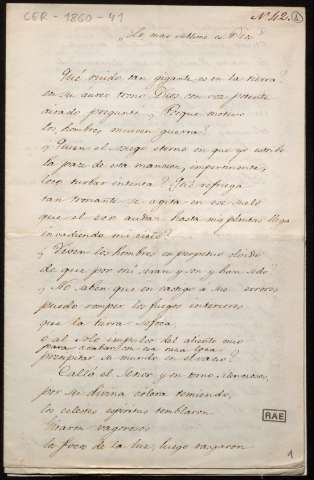 CER-1860-41
Nº 42.
¿Lo mas sublime es Dios?
¿Qué ruido tan gigante es en la tierra?
en su aureo trono Dios con voz potente
airado preguntó; ¿Porque motivo
los hombres mueven guerra?
¿Quien el sosiego eterno en que yo estribo
la paz de esta mansion, impunemente,
loco turbar intenta? ¿Qué refriega
tan tronante se agita en ese suelo
que el eco audaz hasta mis plantas llega
invadiendo mi cielo?
¿Viven los hombres en perpetuo olvido
de que por mí serán y son y han sido?
¿No saben que en castigo a sus errores
puedo romper los fuegos interiores
que la tierra sofoca
o al solo impulso del aliento mio
para acabar en su
precipitar su mundo en el vacio?
Calló el Señor, y en torno silenciosos,
por su divina colera temiendo,
los celestes espiritus temblaron
vagorosos
la de la luz, luego rasgaron
RAE
1